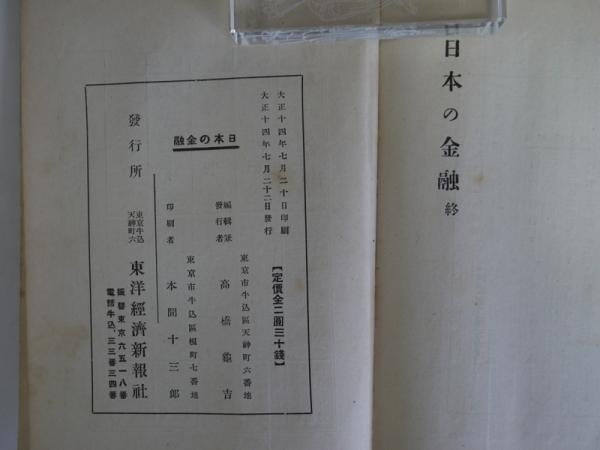 日本の金融 終
大正十四年七月二十日印刷
大正十四年七月二十二日發行
【定價金二圓三十錢】
日本の金融
編輯兼
發行者
東京市牛込區天神町六番地
高橋龜吉
印刷者
東京市牛込區榎町七番地
本間十三郎
發行所
東京牛込
天神町六
東洋經濟新報社
振替東京六五一八番
電話牛込、三三番三四番